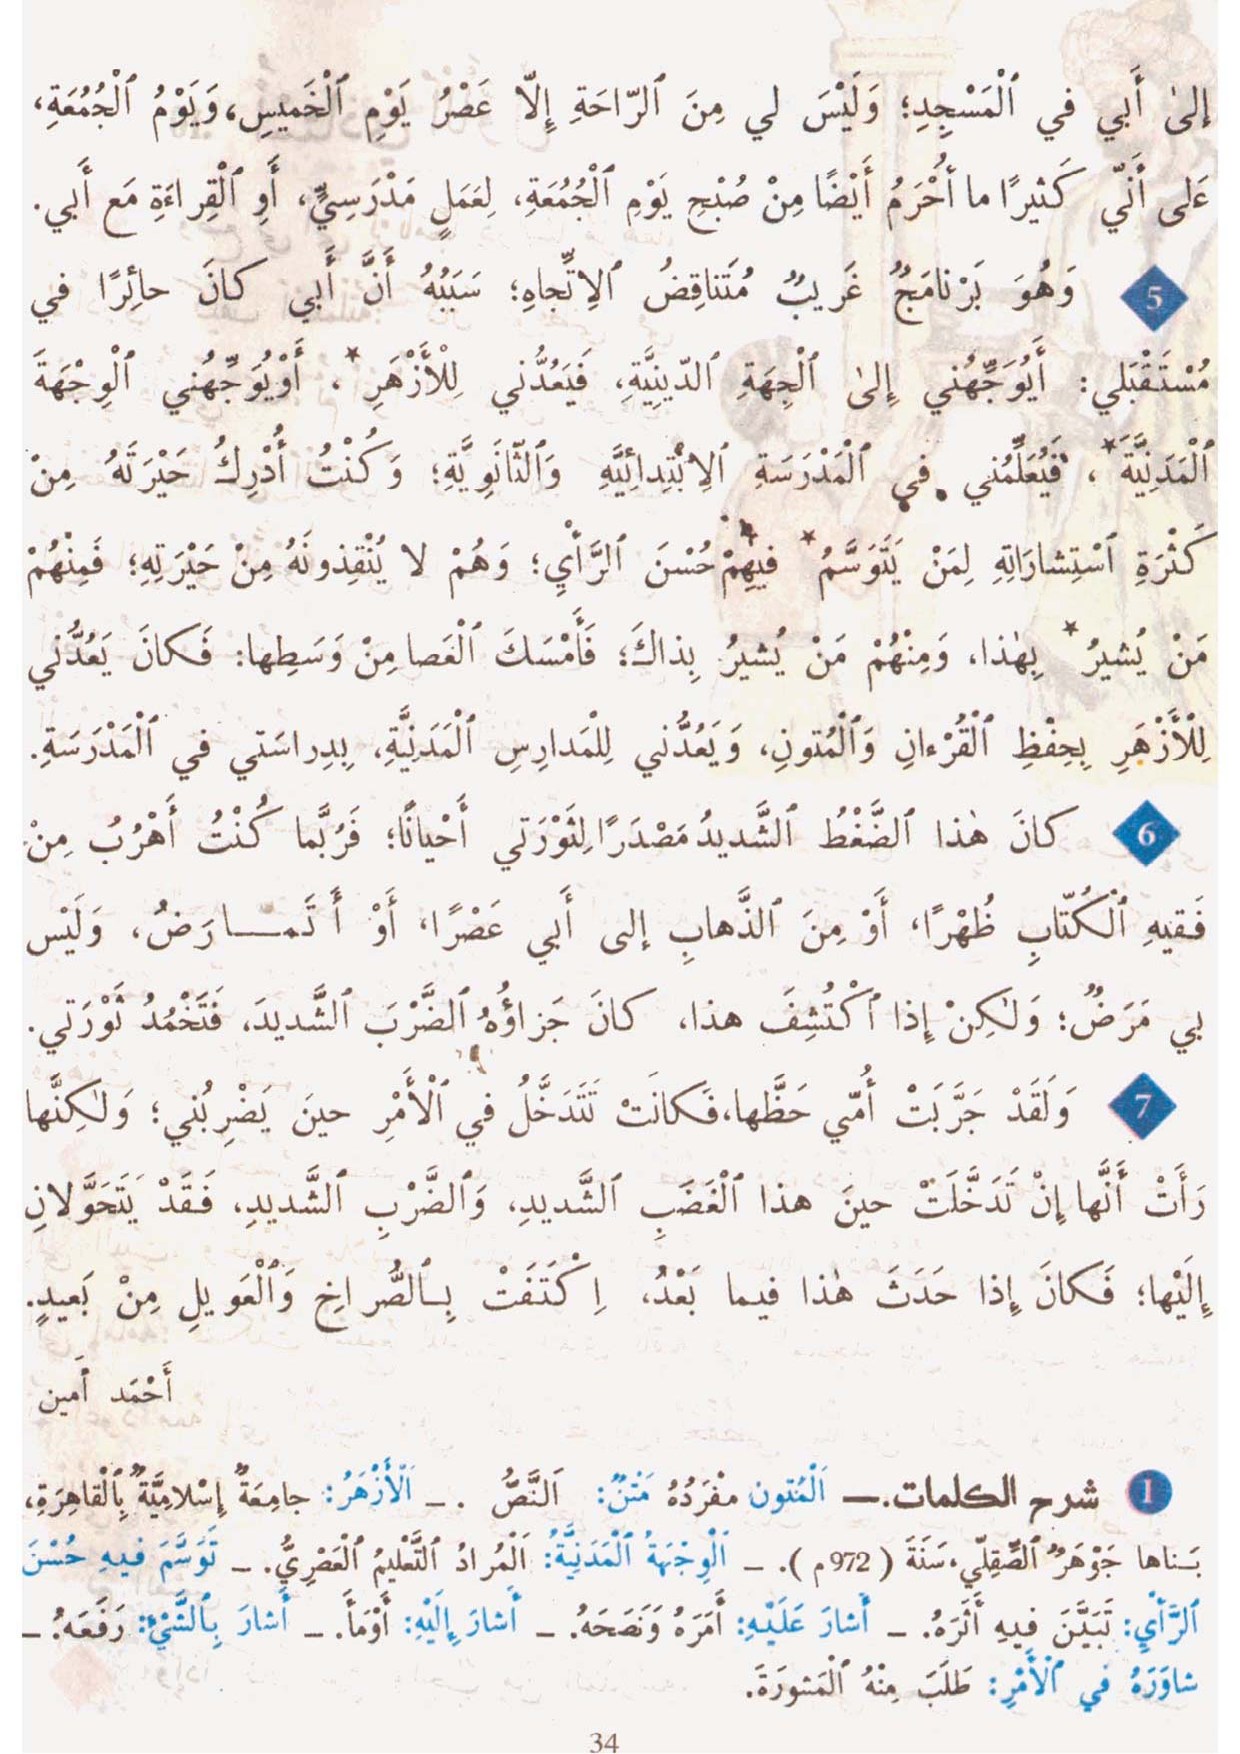 إِلىٰ أَبي في ٱلْمَسْجِدِ؛ وَلَيْسَ لي مِنَ ٱلرّاحَةِ إِلّا عَصْرُ يَوْمِ ٱلْخَميسِ، وَيَوْمُ ٱلْجُمُعَةِ،
عَلى أَنّي كَثيرًا ما أُحْرَمُ أَيْضًا مِنْ صُبْحِ يَوْمِ ٱلْجُمُعَةِ، لِعَمَلٍ مَدْرَسِيٍّ، أَوِ ٱلْقِراءَةِ مَع أَبي.
5 وَهُوَ بَرْنامَجٌ غَريبٌ مُتَناقِضُ ٱلِاتِّجاهِ؛ سَبَبُهُ أَنَّ أَبي كانَ حائِرًا في
مُسْتَقْبَلي: أَيُوَجِّهُني إِلىٰ ٱلْجِهَةِ ٱلدّينِيَّةِ، فَيَعُدُّني لِلْأَزْهَرِ*، أَوْيُوَجِّهُني ٱلْوِجْهَةَ
ٱلْمَدَنِيَّةَ*، فَيُعَلِّمُني في ٱلْمَدْرَسَةِ ٱلِابْتِدائِيَّةِ وَٱلثّانَوِيَّةِ؛ وَكُنْتُ أُدْرِكُ حَيْرَتَهُ مِنْ
كَثْرَةِ ٱسْتِشاراتِهِ لِمَنْ يَتَوَسَّمُ* فيهِمْ* حُسْنَ ٱلرَّأْيِ؛ وَهُمْ لا يُنْقِذونَهُ مِنْ حَيْرَتِهِ؛ فَمِنْهُمْ
مَنْ يُشيرُ* بِهٰذا، وَمِنْهُمْ مَنْ يُشيرُ بِذاكَ؛ فَأَمْسَكَ ٱلْعَصا مِنْ وَسَطِها: فَكانَ يَعُدُّني
لِلْأَزْهَرِ بِحِفْظِ ٱلْقُرْءانِ وَٱلْمُتونِ، وَيَعُدُّني لِلْمَدارِسِ ٱلْمَدَنِيَّةِ، بِدِراسَتي في ٱلْمَدْرَسَةِ.
6 كانَ هٰذا ٱلضَّغْطُ ٱلشَّديدُ مَصْدَرًا لِثَوْرَتي أَحْيانًا؛ فَرُبَّما كُنْتُ أَهْرُبُ مِنْ
فَقيهِ ٱلْكُتّابِ ظُهْرًا، أَوْ مِنَ ٱلذَّهابِ إِلى أَبي عَصْرًا، أَوْ أَتَمـــارَضُ، وَلَيْس
بي مَرَضٌ؛ وَلٰكِنْ إِذا ٱكْتُشِفَ هذا، كانَ جَزاؤُهُ ٱلضَّرْبَ ٱلشَّديدَ، فَتَخْمُدُ ثَوْرَتي.
7 وَلَقَدْ جَرَّبَتْ أُمّي حَظَّها، فَكانَتْ تَتَدَخَّلُ في ٱلْأَمْرِ حينَ يَضْرِبُني؛ وَلٰكِنَّها
رَأَتْ أَنَّها إِنْ تَدَخَّلَتْ حينَ هذا ٱلْغَضَبِ ٱلشَّديدِ، وَٱلضَّرْبِ ٱلشَّديدِ، فَقَدْ يَتَحَوَّلانِ
إِلَيْها؛ فَكانَ إِذا حَدَثَ هٰذا فيما بَعْدُ، اِكْتَفَتْ بِٱلصُّراخِ وَٱلْعَويلِ مِنْ بَعيدٍ.
أَحْمَد أَمين
1 شرح الكلمات.— اَلْمُتون مفْرَدُهُ مَتْنٌ: اَلنَّصُّ. — اَلْأَزْهَرُ: جامِعَةٌ إِسْلامِيَّةٌ بِٱلْقاهِرَةِ،
بَناها جَوْهَرٌ ٱلصِّقِلّي، سَنَةَ (972م). — اَلْوِجْهَةُ ٱلْمَدَنِيَّةُ: اَلْمُرادُ ٱلتَّعْليمُ ٱلْعَصْرِيُّ. — تَوَسَّمَ فيهِ حُسْنَ
ٱلرَّأْيِ: تَبَيَّنَ فيهِ أَثَرَهُ. — أَشارَ عَلَيْهِ: أَمَرَهُ وَنَصَحَهُ. — أَشارَ إِلَيْهِ: أَوْمَأَ. — أَشارَ بِٱلشَّيْءِ: رَفَعَهُ. —
شاوَرَهُ في ٱلْأَمْرِ: طَلَبَ مِنْهُ ٱلْمَشورَةَ.
34